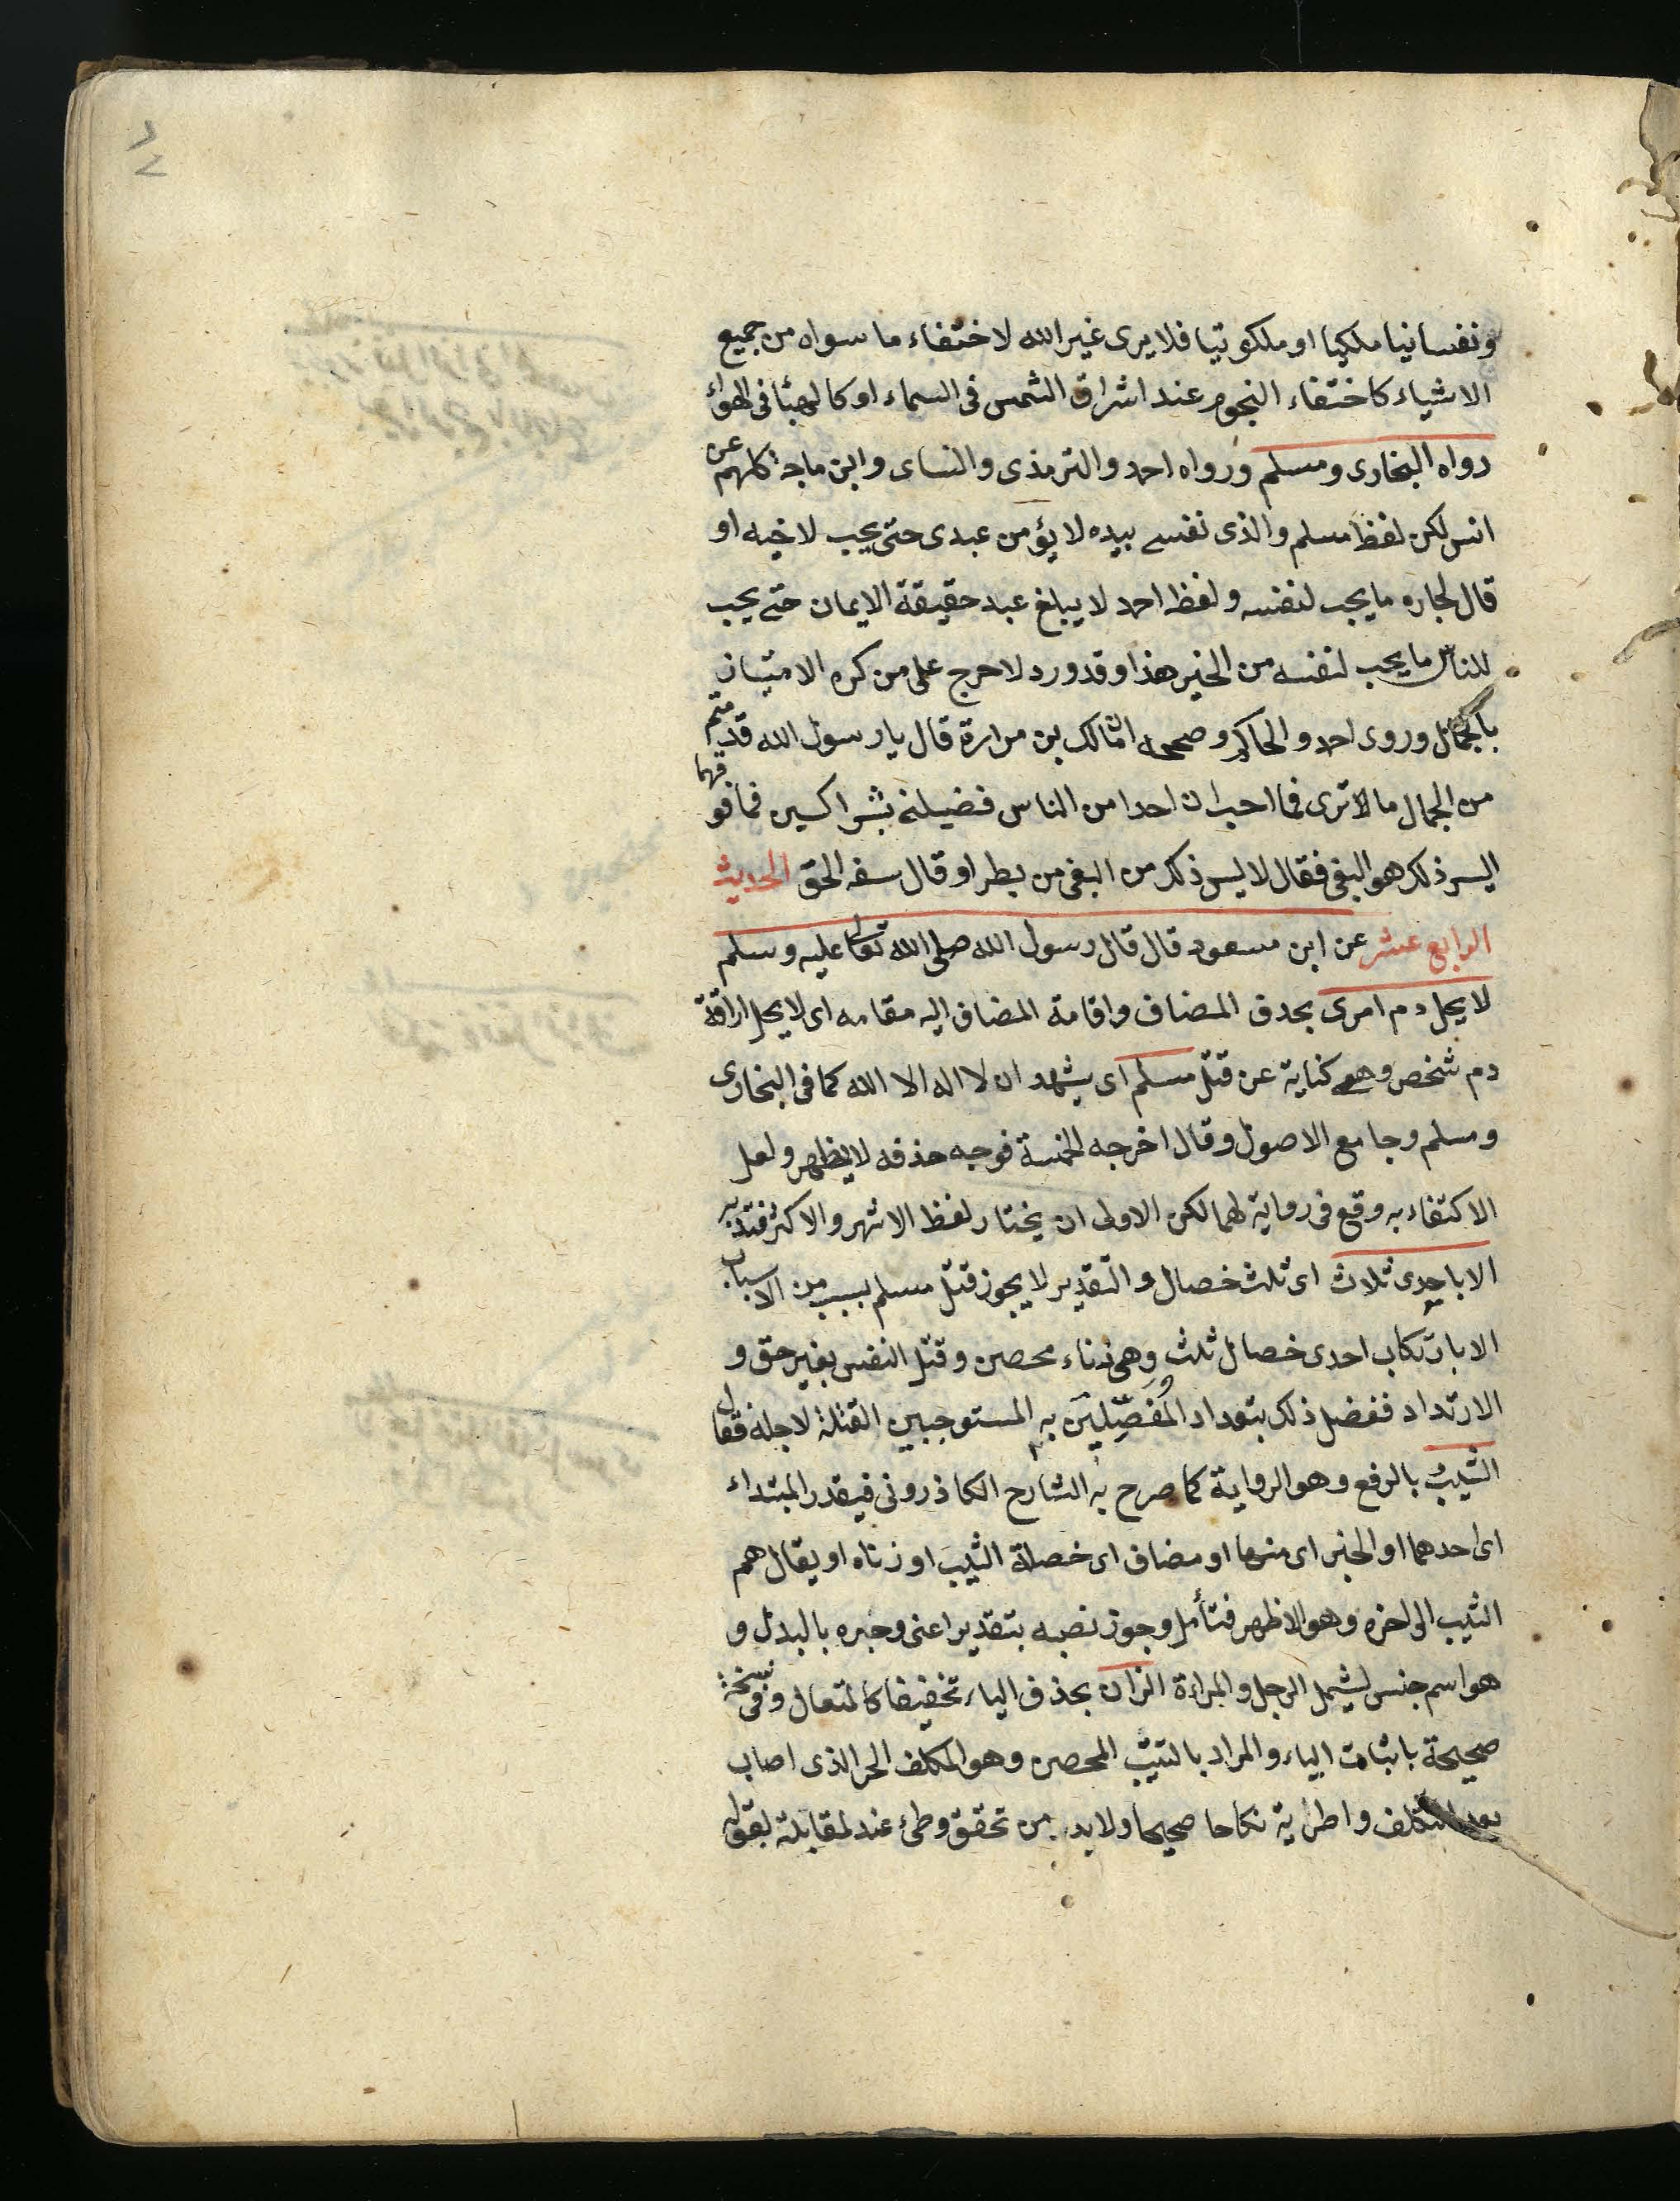 ونفسانيا ملكيا او ملكوتيا فلا يرى غير الله لاختفاء ما سواه من جميع
الاشياء كاختفاء النجوم عند اشراق الشمس فى السماء او كالهبئا فى الهواء
رواه البخارى ومسلم ورواه احمد والترمذى والنساى وابن ماجة كلهم عن
انس لكن لفظ مسلم والذى نفسى بيده لا يؤمن عبدى حتى يحب لاخيه او
قال لجاره ما يحب لنفسه ولفظ احمد لا يبلغ عبد حقيقة الايمان حتى يحب
للناس ما يحب لنفسه من الخير هذا وقد ورد لا حرج على من كره الامتياز
بالجمال وروى احمد والحاكم وصححه ان مالك بن مرارة قال يا رسول الله قد
من الجمال ما لا ترى فما احب ان احدا من الناس فضيلنى بشراكين فما فوقهما
اليس ذلك هو البغى فقال لا ليس ذلك من البغى من بطر او قال سفه الحق الحديث
الرابع عشر عن ابن مسعود قال قال رسول الله صلى الله تعالى عليه وسلم
لا يحل دم امرى بحدف المضاف واقامة المضاف اليه مقامه اى لا يحل اراقة
دم شخص وهى كناية عن قتل مسلم اى يشهد ان لا اله الا الله كما فى البخارى
ومسلم وجامع الاصول وقال اخرجه الخمسة فوجه حذفه لا يظهر ولعل
الاكتفاء به وقع فى رواية لهما لكن الاولى ان يختار لفظ الاشهر والاكثر فتدبر
الا باحدى ثلاث اى ثلث خصال والتقدير لا يجوز قتل مسلم بسبب من الاسباب
الا بارتكاب احدى خصال ثلث وهى زناء محصن وقتل النفس بغير حق و
الارتداد ففصل ذلك بتعداد المُفَصِّلِين به المستوجبين القتلة لاجله فقال
الثيبُ بالرفع وهو الرواية كما صرح به الشارح الكاذرونى فيقدر المبتداء
اى احدهما او الخبر اى منها او مضاف اى خصلة الثيب او زناه او يقال هم
الثيب الى اخره وهو الاظهر فتأمل وجوز نصبه بتقدير اعنى وجره بالبدل و
هو اسم جنس يشمل الرجل والمراءة الزان بحذف الياء تخفيفا كالمتعال وفى نسخة
صحيحة باثبات الياء والمراد بالثيب المحصن وهو المكلف الحر الذى اصاب
بعد التكلف واطراية نكاحا صحيحا ولابد من تحقق وطئ عند لمقابلة بقوله